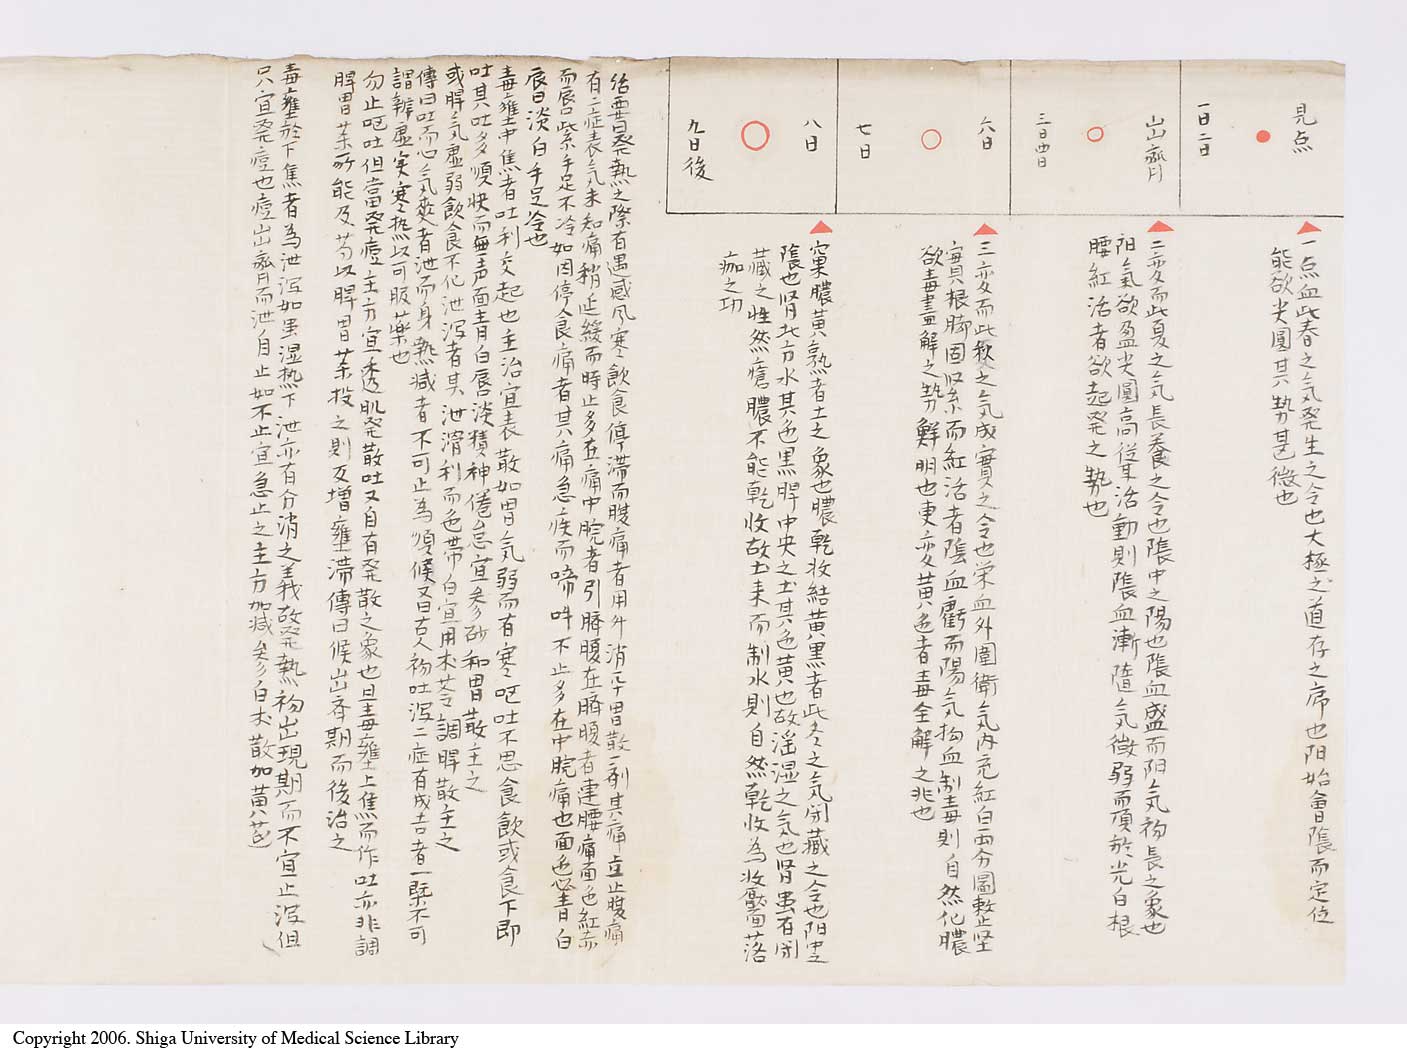 見点
一日二日
一点血此春之気発生之令也大極之道存之席也阳始會陰而定位
能欲尖圓其勢甚微也
出齊
三日四日
二変而此夏之気長養之令也陰中之陽也陰血盛而阳気初長之象也
阳氣欲盈尖圓高従耳活動則陰血漸隨気微弱而頂於光白根
腰紅活者欲起発之勢也
六日
七日
三変而此秋之気成實之令也栄血外圍衛気内充紅白両分圓整坚
實其根脚固紧而紅活者陰血麿而陽気拘血制毒則自然化膿
欲毒盡解之勢鮮明也更変黄色者毒全解之兆也
八日
九日後
窠膿黄熟者土之象也膿乾收結黄黒者此冬之気閉藏之令也阳中之
陰也肾北方水其色黒脾中央之土其色黄也故淫湿之気也肾虽有闭
藏之性然瘡膿不能乾收故土来而制水則自然乾收為收靨而落
痂之功
治要曰発熱之際有遇感風寒飲食停滞而腹痛者用外消平胃散一剤其痛立止腹痛
有二症表気未和痛稍近緩而時止多在痛中脘者引臍腹在臍腹者連腰痛面色紅赤
而唇紫手足不冷如因停食痛者其痛急疾而啼呌不止多在中脘痛也面色必青白
唇白淡白手足冷也
毒壅中焦者吐利交起也主治宜表散如胃気弱而有寒呕吐不思食飲或食下即
吐其吐多順快而無声面青白唇淡積神倦怠宜参砂和胃散主之
或脾気虚弱飲食不化泄泻者其泄滑利而色帯白宜用朮苓調脾散主之
傳曰吐而心気爽者泄而身熱減者不可止為順候又曰古人初吐泻二症有成吉者一槩不可
謂辨虚实寒热以可服藥也
勿止呕吐但當発痘主方宜透肌発散吐又自有発散之象也且毒壅上焦而作吐亦非調
脾胃茱所能及芶以脾胃茱投之則反增壅滞傳曰候出齊期而後治之
毒壅於下焦者為泄泻如虽湿热下泄亦有分消之義故発熱初出現期而不宜止泻但
只宜発痘也痘出齊而泄自止如不止宜急止之主方加減参白朮散加黄芪